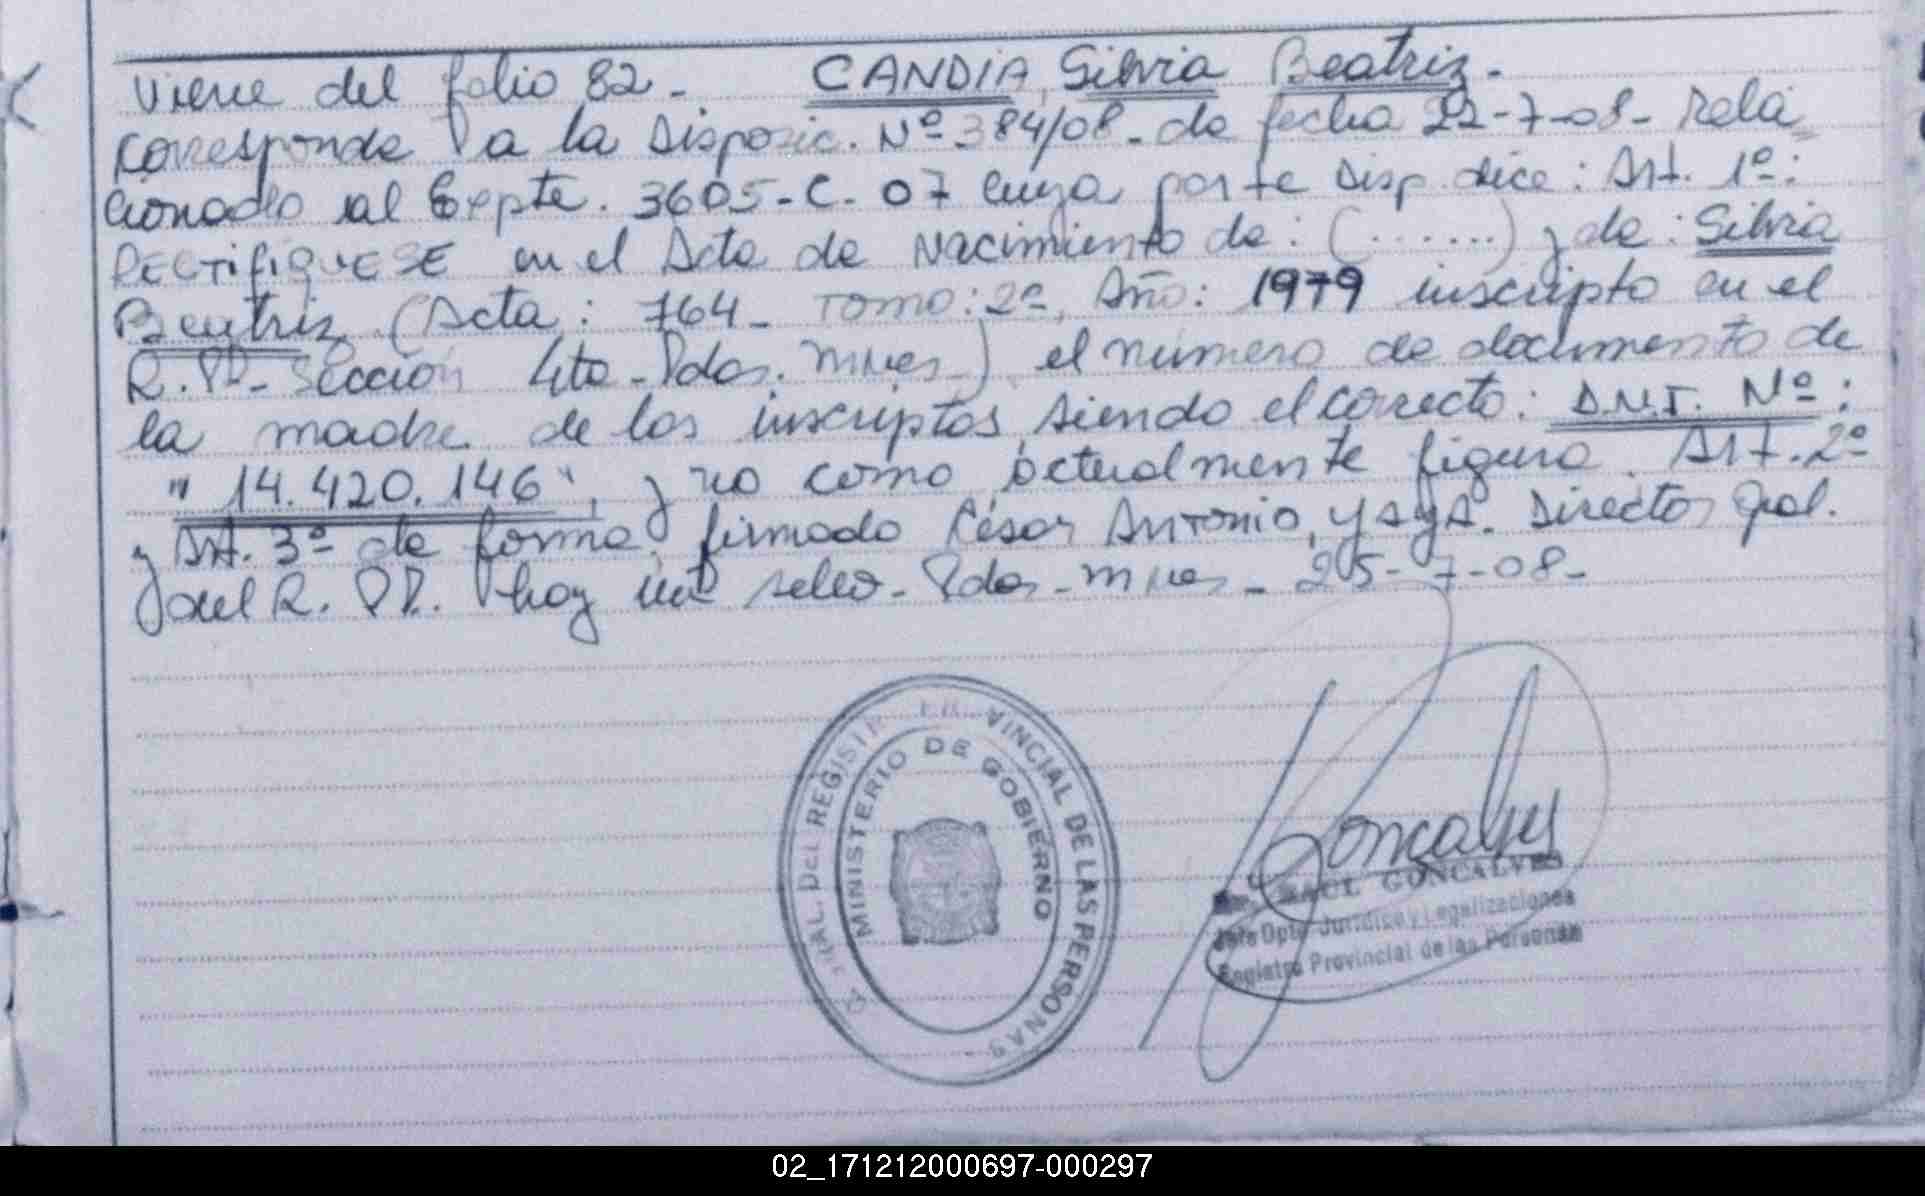 Viene del folio 82- CANDIA, Silvia Beatriz.
Corresponde a la Disposic. Nº 384/08- de fecha 22-7-08- Rela
cionado al Expte. 3605-C-07 cuya parte Disp. dice: Art. 1º:
RECTIFIQUESE en el Acta de Nacimiento de: (......) y de: Silvia
Beatriz (Acta: 764- Tomo: 2º, Año: 1979 inscripto en el
R.PP- Sección 4ta- Pdas. Mnes.) el número de documento de
la madre de los inscriptos, siendo el correcto: D.N.I. Nº:
"14.420.146", y no como actualmente figura. Art. 2º
y Art. 3º de forma, firmado César Antonio, YAYA. Director Gral.
del R. PP. hay un sello- Pdas- Mnes- 25-7-08-
GRAL. DEL REGISTR PR VINCIAL DE LAS PERSONAS -
MINISTERIO DE GOBIERNO
Goncalves
RAUL GONCALVES
Jefe Dpto. Jurídico y Legalizaciones
Registro Provincial de las Personas
02_171212000697-000297